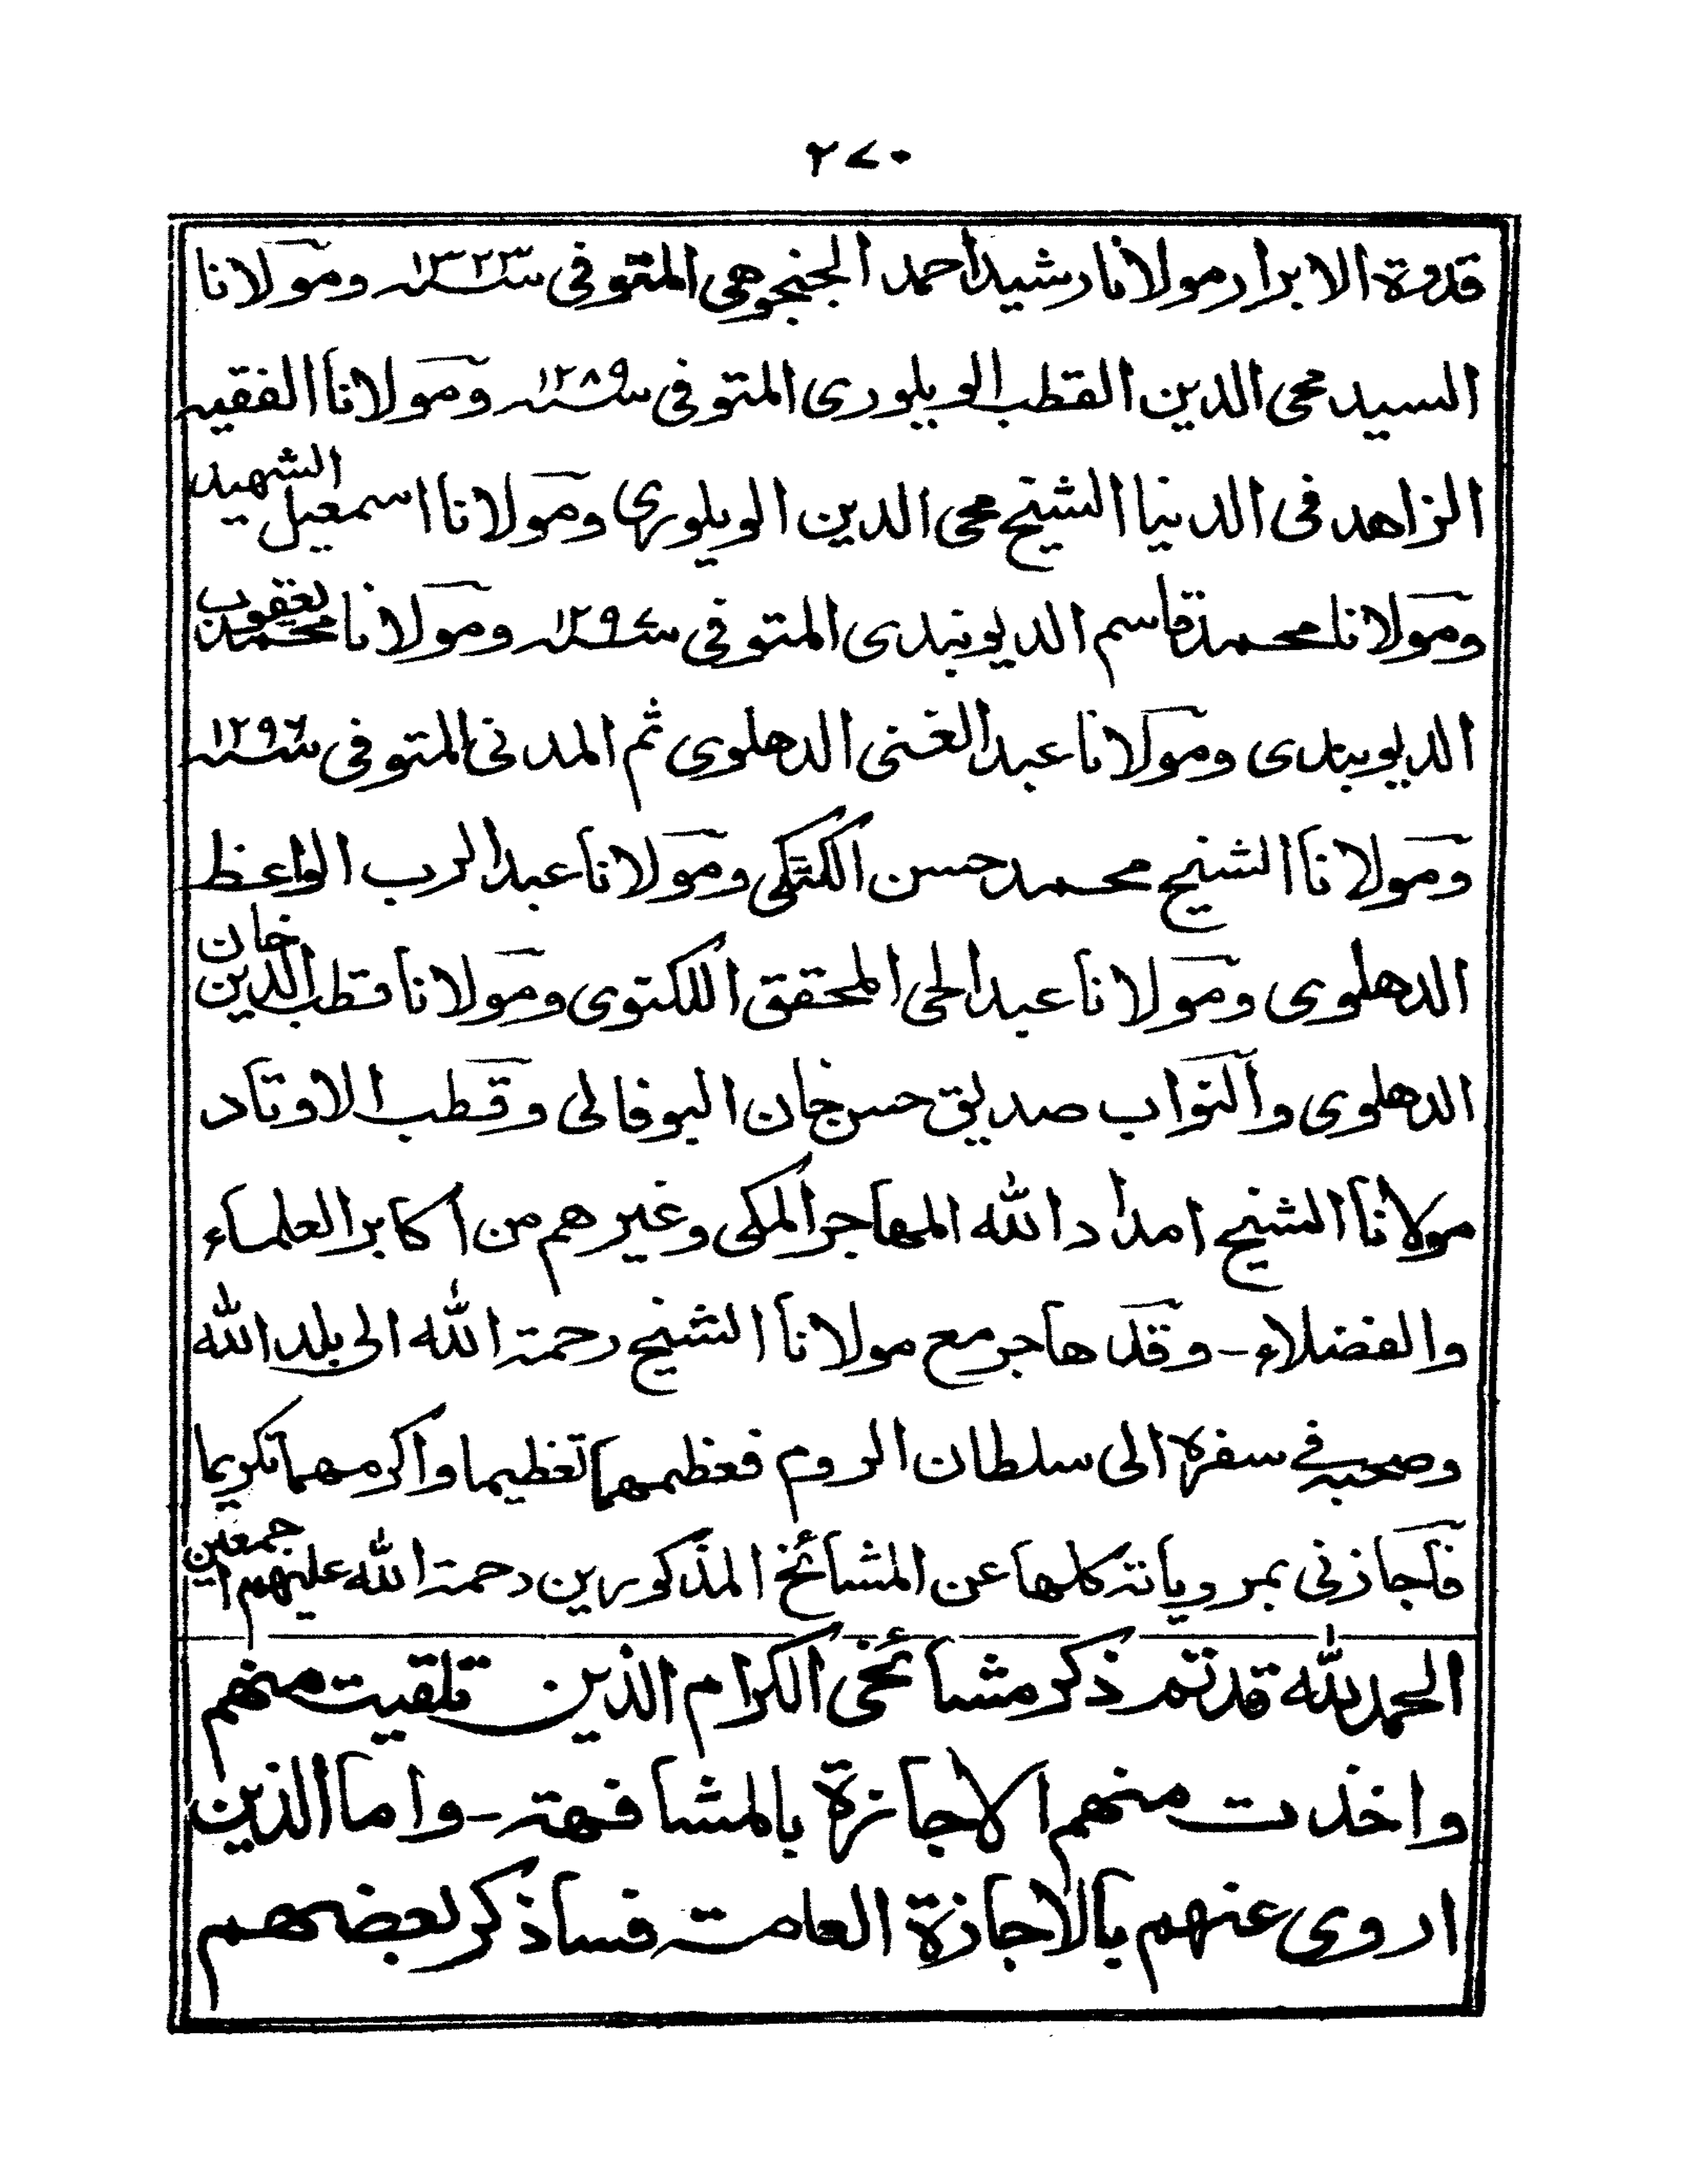 ٢٧٠
قدوة الابرار مولانا رشيد احمد الجنجوهى المتوفى سنه ١٣٢٣ ومولانا
السيد محى الدين القطب الويلورى المتوفى سنه ١٢٨٩ ومولانا الفقيه
الزاهد فى الدنيا الشيخ محى الدين الويلورى ومولانا اسمعيل الشهيد
ومولانا محمد قاسم الديوبندى المتوفى سنه ١٢٩٧ ومولانا محمد يعقوب
الديوبندى ومولانا عبد الغنى الدهلوى ثم المدنى المتوفى سنه ١٢٩٦
ومولانا الشيخ محمد حسن الكتكى ومولانا عبد الرب الواعظ
الدهلوى ومولانا عبد الحى المحقق اللكنوى ومولانا قطب الدين خان
الدهلوى والنواب صديق حسن خان البوفالى وقطب الاوتاد
مولانا الشيخ امداد الله المهاجر المكى وغيرهم من اكابر العلماء
والفضلاء - وقد هاجر مع مولانا الشيخ رحمة الله الى بلد الله
وصحبه فى سفره الى سلطان الروم فعظمهما تعظيما واكرمهما تكريما
فاجازنى بمروياته كلها عن المشائخ المذكورين رحمة الله عليهم اجمعين
الحمد لله قد تم ذكر مشائخى الكرام الذين تلقيت منهم
واخذت منهم الاجازة بالمشافهة - واما الذين
اروى عنهم بالاجازة العامة فساذكر بعضهم